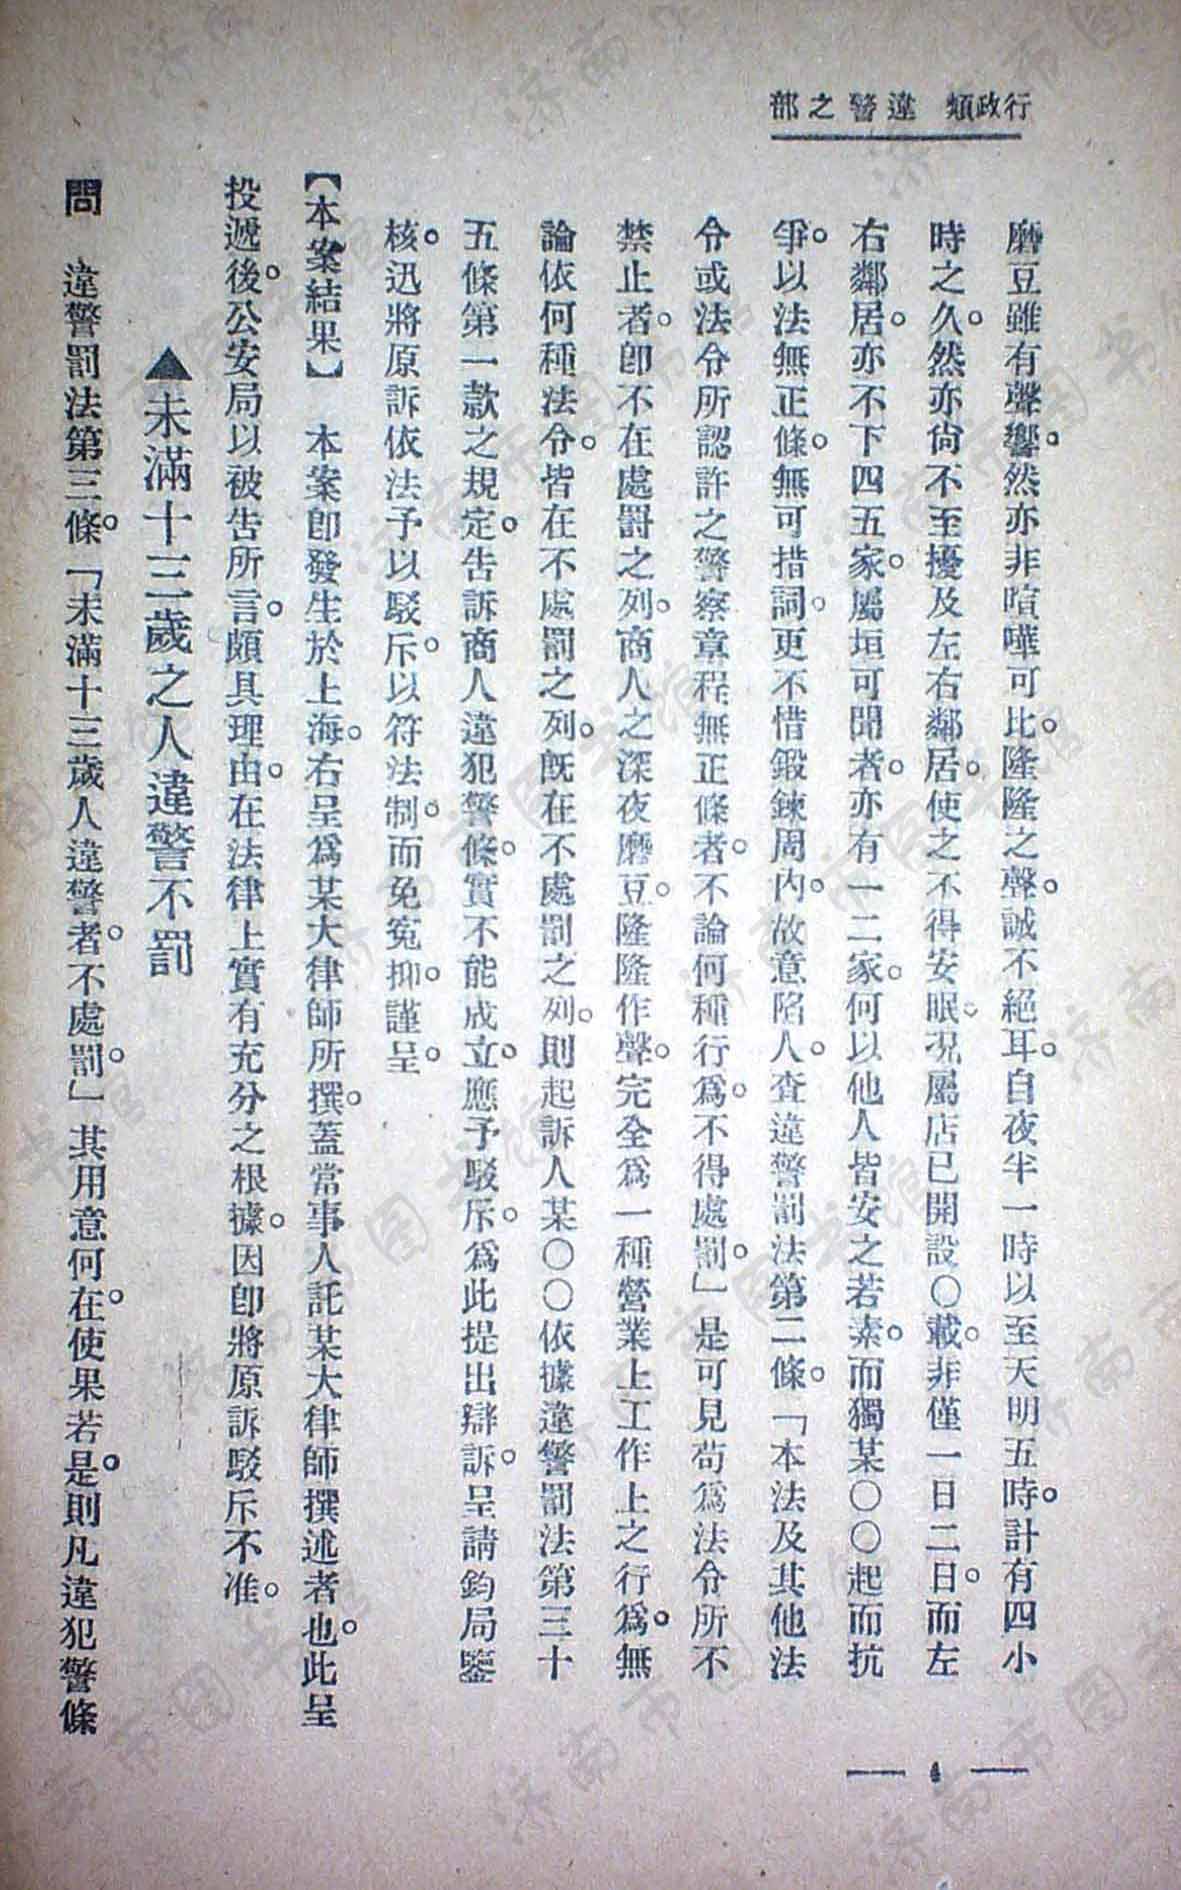 行政類　違警之部
磨豆雖有聲響。然亦非喧嘩可比。隆隆之聲。誠不絕耳。自夜半一時以至天明五時。計有四小
時之久。然亦尙不至擾及左右鄰居。使之不得安眠。况屬店已開設〇載。非僅一日二日。而左
右鄰居。亦不下四五家。屬垣可聞者。亦有一二家。何以他人皆安之若素。而獨某〇〇起而抗
爭。以法無正條。無可措詞。更不惜鍛鍊周內。故意陷人。查違警罰法第二條。「本法及其他法
令或法令所認許之警察章程無正條者。不論何種行爲。不得處罰。」是可見苟爲法令所不
禁止者。卽不在處罰之列。商人之深夜磨豆。隆隆作聲。完全爲一種營業上工作上之行爲。無
論依何種法令。皆在不處罰之列。旣在不處罰之列。則起訴人某〇〇依據違警罰法第三十
五條第一款之規定。告訴商人違犯警條。實不能成立。應予駁斥。爲此提出辯訴。呈請鈞局鑒
核。迅將原訴依法予以駁斥。以符法制。而免寃抑。謹呈。
【本案結果】　本案卽發生於上海。右呈爲某大律師所撰。蓋當事人託某大律師撰述者也。此呈
投遞後。公安局以被告所言。頗具理由。在法律上實有充分之根據。因卽將原訴駁斥不准。
▲未滿十三歲之人違警不罰
問　違警罰法第三條。「未滿十三歲人違警者。不處罰。」其用意何在。使果若是。則凡違犯警條
— 4 —
济南市图书馆